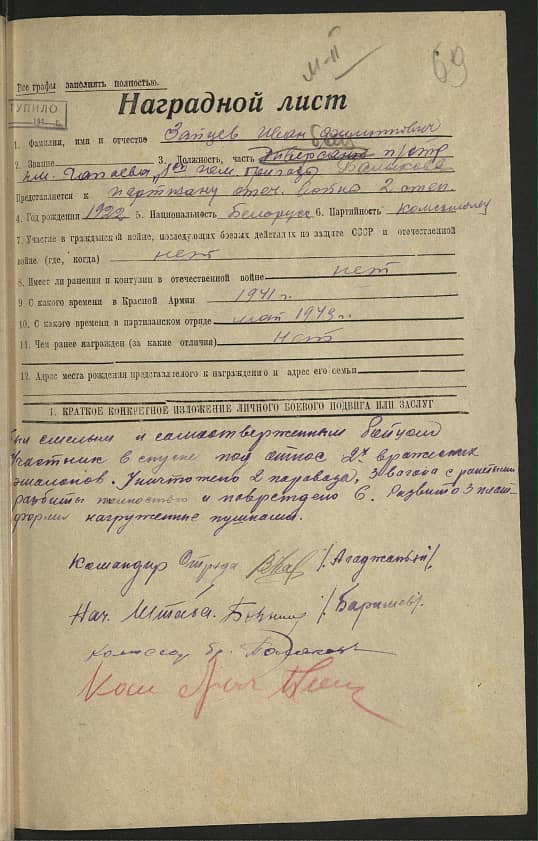 М-II
69
Все графы заполнять полностью.
ТУПИЛО
194 г.
Наградной лист
1. Фамилия, имя и отчество Зайцев Иван Филиппович
2. Звание 3. Должность, часть боец п/отр
им. Чапаева
Представляется к партизану отеч. войны 2 степ.
4. Год рождения 1922 5. Национальность Белорус 6. Партийность Комсомолец
7. Участие в гражданской войне, последующих боевых действиях по защите СССР и отечественной
войне (где, когда) нет
8. Имеет ли ранения и контузии в отечественной войне нет
9. С какого времени в Красной Армии 1941 г.
10. С какого времени в партизанском отряде май 1943 г.
11. Чем ранее награжден (за какие отличия) Нет
12. Адрес места рождения представляемого к награждению и адрес его семьи
1. КРАТКОЕ КОНКРЕТНОЕ ИЗЛОЖЕНИЕ ЛИЧНОГО БОЕВОГО ПОДВИГА ИЛИ ЗАСЛУГ
смелым и самоотверженным бойцом
Участник в спуске под откос 2х вражеских
эшалонов. Уничтожено 2 паравоза, 3 вагона с
разбиты полностью и повреждено 6. Развито 3 плат-
формы нагруженные пушками.
Командир Отряда /Агаджанян/.
Нач. Штаба. /Барышев/.
Комиссар бр.